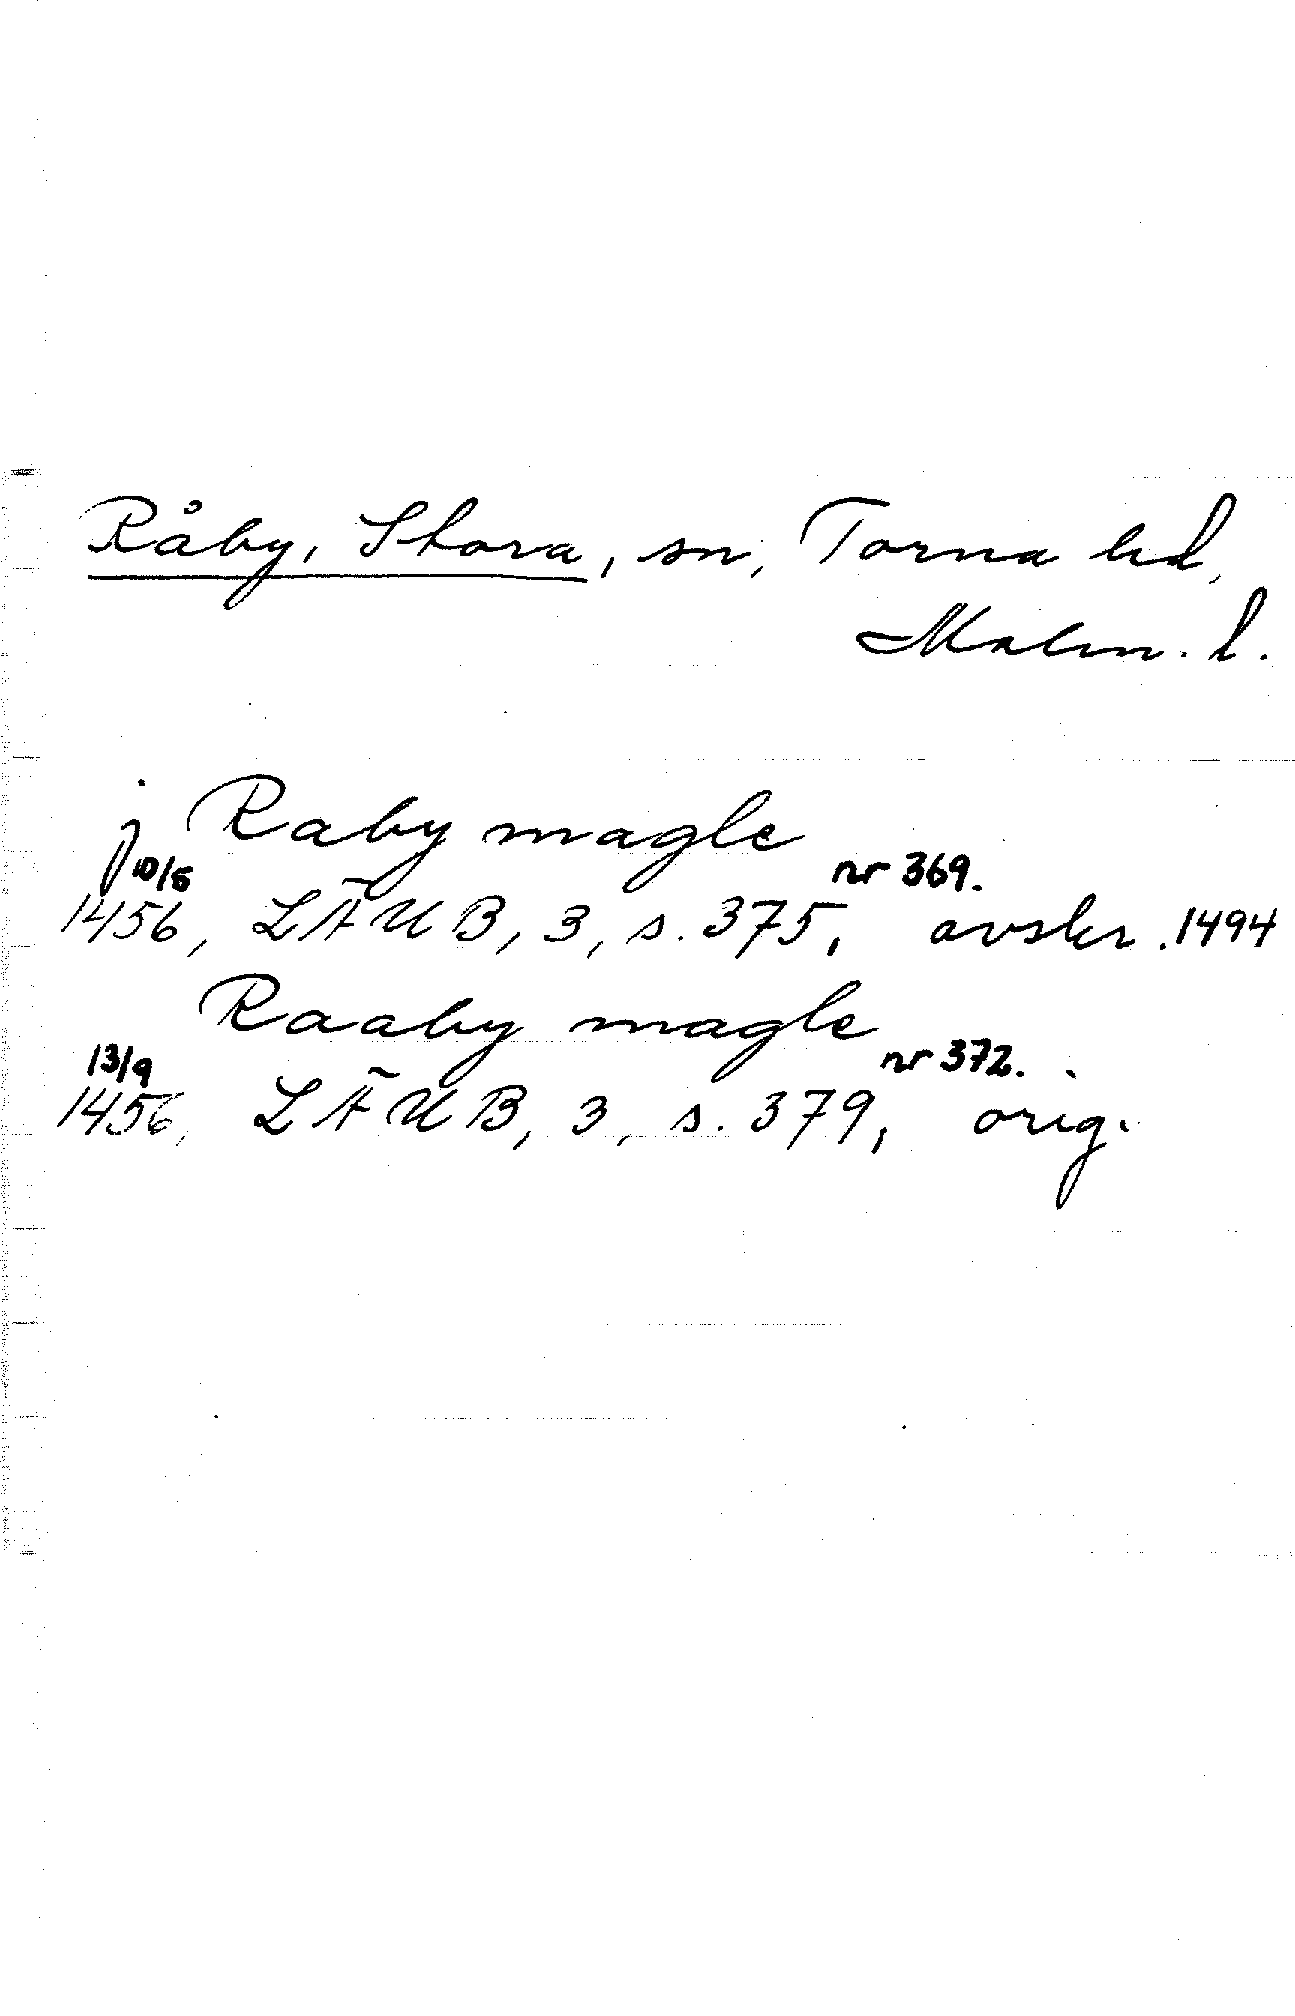 Råby, Stora, sn, Torna hd,
Malm. l.
j Raby magle
10/5 nr 369.
1456, LÄUB, 3, s. 375, avskr. 1494
Raaby magle
13/9 nr 372.
1456, LÄUB, 3, s. 379, orig.